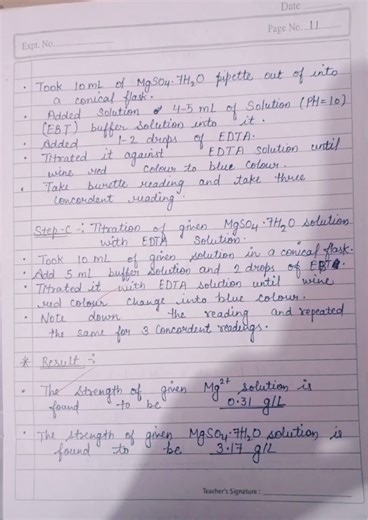 Date
Page No. 11
Expt. No.
• Took 10 mL of MgSO4·7H2O pipette out of into
a conical flask.
• Added solution of 4-5 mL of Solution (PH=10)
(EBT) buffer solution into it.
• Added 1-2 drops of EDTA.
• Titrated it against EDTA solution until
wine red colour to blue colour.
• Take burette reading and take three
concordent reading.
Step-C :- Titration of given MgSO4·7H2O solution
with EDTA Solution.
• Took 10 mL of given solution in a conical flask.
• Add 5 ml buffer solution and 2 drops of
• Titrated it with EDTA solution until wine
red colour change into blue colour.
• Note down the reading and repeated
the same for 3 concordent readings.
* Result :-
• The strength of given Mg2+ solution is
found to be 0.31 g/L
• The strength of given MgSO4·7H2O solution is
found to be 3.17 g/L
Teacher's Signature :